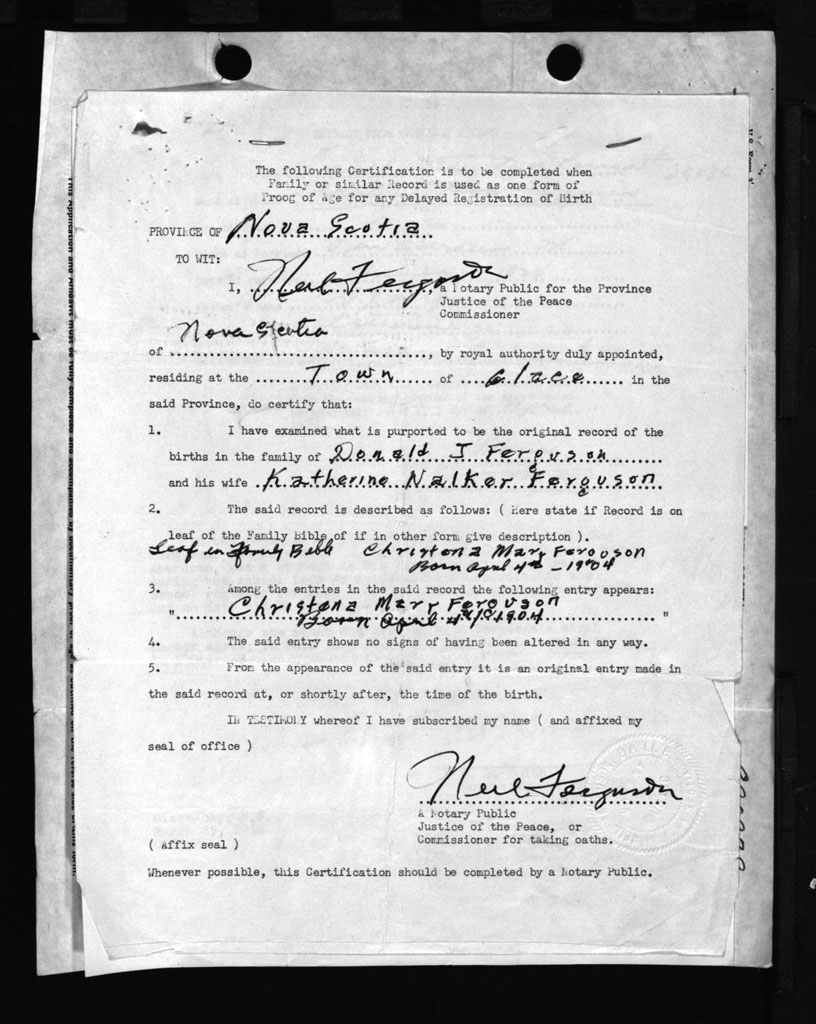 The following Certification is to be completed when
Family or similar Record is used as one form of
Proog of Age for any Delayed Registration of Birth
PROVINCE OF Nova Scotia
TO WIT:
I, Neil Ferguson, a Notary Public for the Province
Justice of the Peace
Commissioner
Nova Scotia
of ......, by royal authority duly appointed,
residing at the Town of Glace in the
said Province, do certify that:
1. I have examined what is purported to be the original record of the
births in the family of Donald J Ferguson
and his wife Katherine Walker Ferguson
2. The said record is described as follows: ( Here state if Record is on
leaf of the Family Bible of if in other form give description ).
Leaf in Family Bible Christena Mary Ferguson
Born April 4th - 1904
3. Among the entries in the said record the following entry appears:
" Christena Mary Ferguson
Born April 4th 1904 "
4. The said entry shows no signs of having been altered in any way.
5. From the appearance of the said entry it is an original entry made in
the said record at, or shortly after, the time of the birth.
IN TESTIMONY whereof I have subscribed my name ( and affixed my
seal of office )
Neil Ferguson
A Notary Public
Justice of the Peace, or
Commissioner for taking oaths.
( Affix seal )
Whenever possible, this Certification should be completed by a Notary Public.